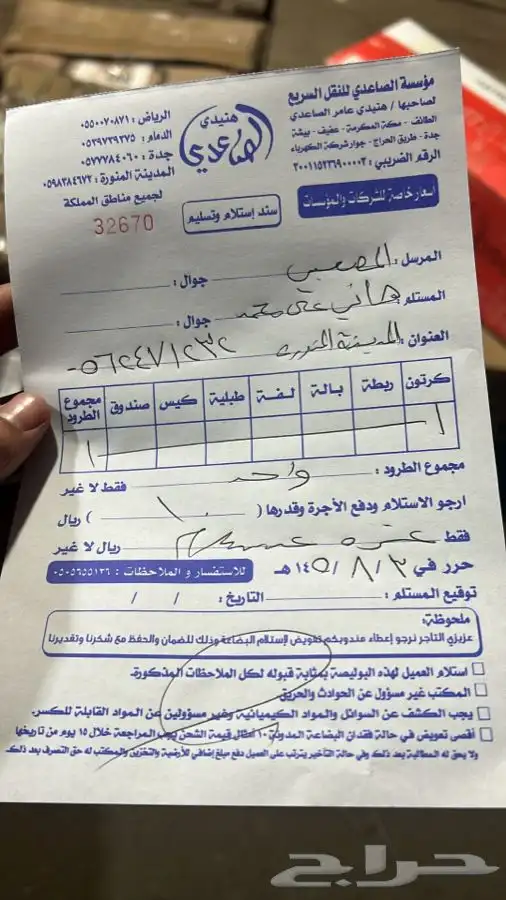 مؤسسة الصاعدي للنقل السريع
لصاحبها / هنيدي عامر الصاعدي
الطائف - مكة المكرمة - عفيف - بيشة
جدة - طريق الحراج - جوار شركة الكهرباء
الرقم الضريبي: ٣٠٠١١٥٢٣٦٩٠٠٠٠٣
اسعار خاصة للشركات والمؤسسات
هنيدي
الصاعدي
سند إستلام وتسليم
الرياض: ٠٥٥٠٠٧٠٨٧١
الدمام: ٠٥٣٩٧٣٩٣٧٥
جدة: ٠٥٧٧٧٨٤٠٦٠
المدينة المنورة: ٠٥٩٨٣٨٤٦٧٣
لجميع مناطق المملكة
32670
المرسل: جوال:
المستلم: هاني علي محمد جوال:
العنوان: المدينة المنورة ٠٥٦٢٤٧١٢٣٢
كرتون ربطة بالة لفة طبلية كيس صندوق مجموع الطرود
١ ١
مجموع الطرود: واحد فقط لا غير
ارجو الاستلام ودفع الأجرة وقدرها ( ١٠ ) ريال
فقط عشرة ريال لا غير
حرر في ٢ / ٨ / ١٤٥ هـ
للاستفسار و الملاحظات: ٠٥٠٥٦٥٥١٣٦
توقيع المستلم: التاريخ: / /
ملحوظة:
عزيزي التاجر نرجو إعطاء مندوبكم تفويض لإستلام البضاعة وذلك للضمان والحفظ مع شكرنا وتقديرنا
استلام العميل لهذه البوليصة بمثابة قبوله لكل الملاحظات المذكورة.
المكتب غير مسؤول عن الحوادث والحريق
يجب الكشف عن السوائل والمواد الكيميائية وغير مسؤولين عن المواد القابلة للكسر.
أقصى تعويض في حالة فقدان البضاعة المدونة ١٠ أمثال قيمة الشحن يجب المراجعة خلال ١٥ يوم من تاريخها
ولا يحق له المطالبة بعد ذلك وفي حالة التأخير يترتب على العميل دفع مبلغ إضافي للأرضية والتخزين والمكتب له حق التصرف بعد ذلك
حراج